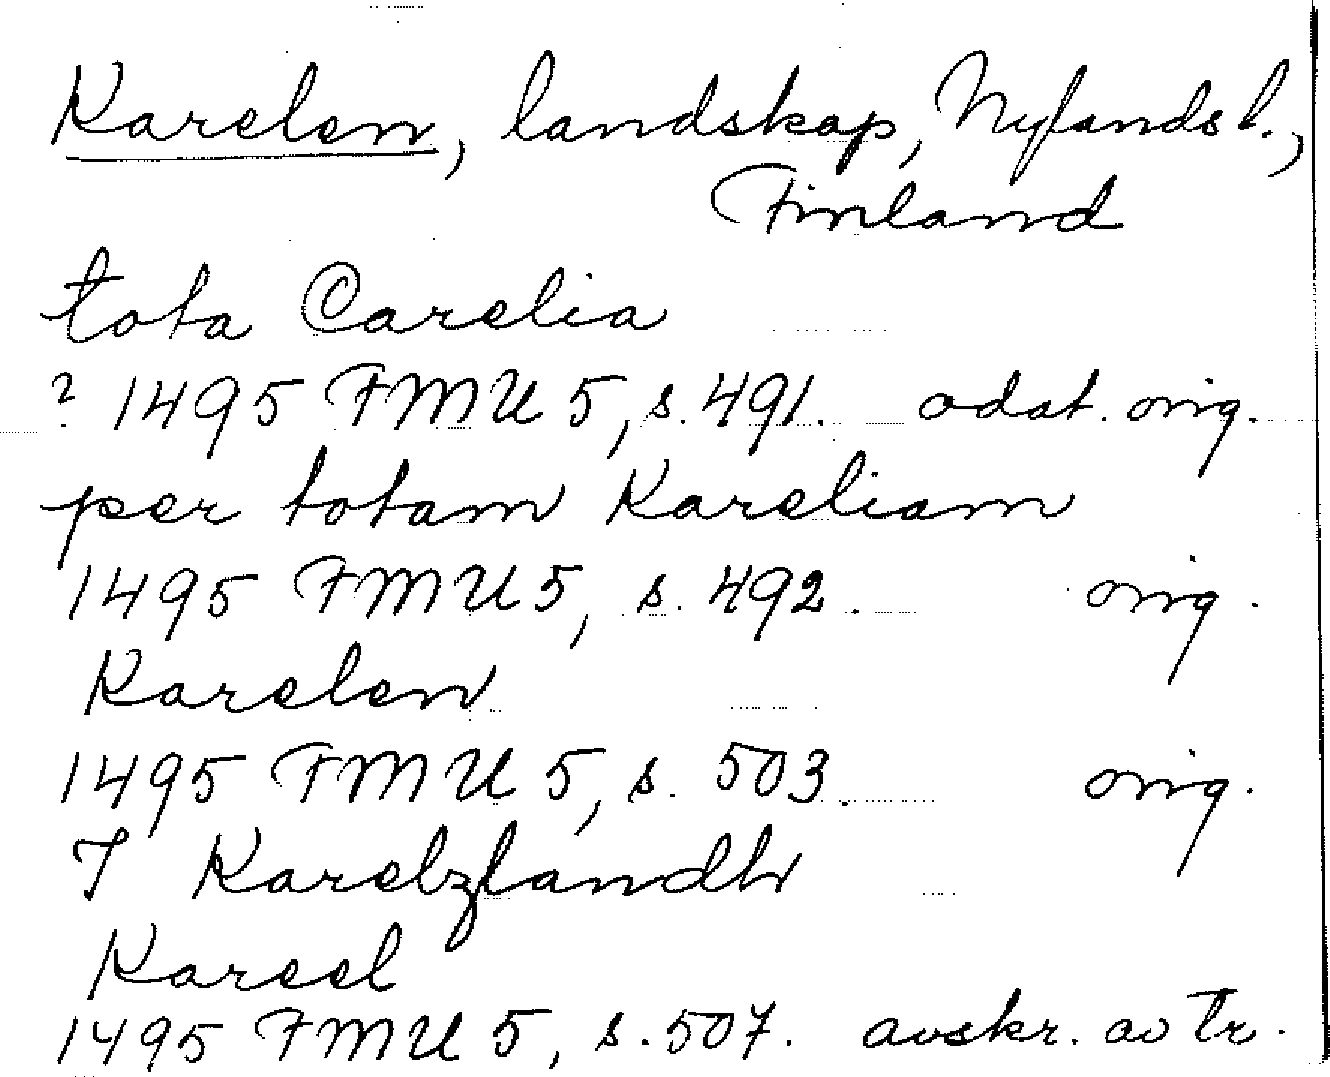 Karelen, landskap, Nylands l.,
Finland
tota Carelia
? 1495 FMU 5, s. 491. odat. orig.
per totam Kareliam
1495 FMU 5, s. 492. orig.
Karelen
1495 FMU 5, s. 503. orig.
J Karelzlandh
Kareel
1495 FMU 5, s. 507. avskr. av tr.